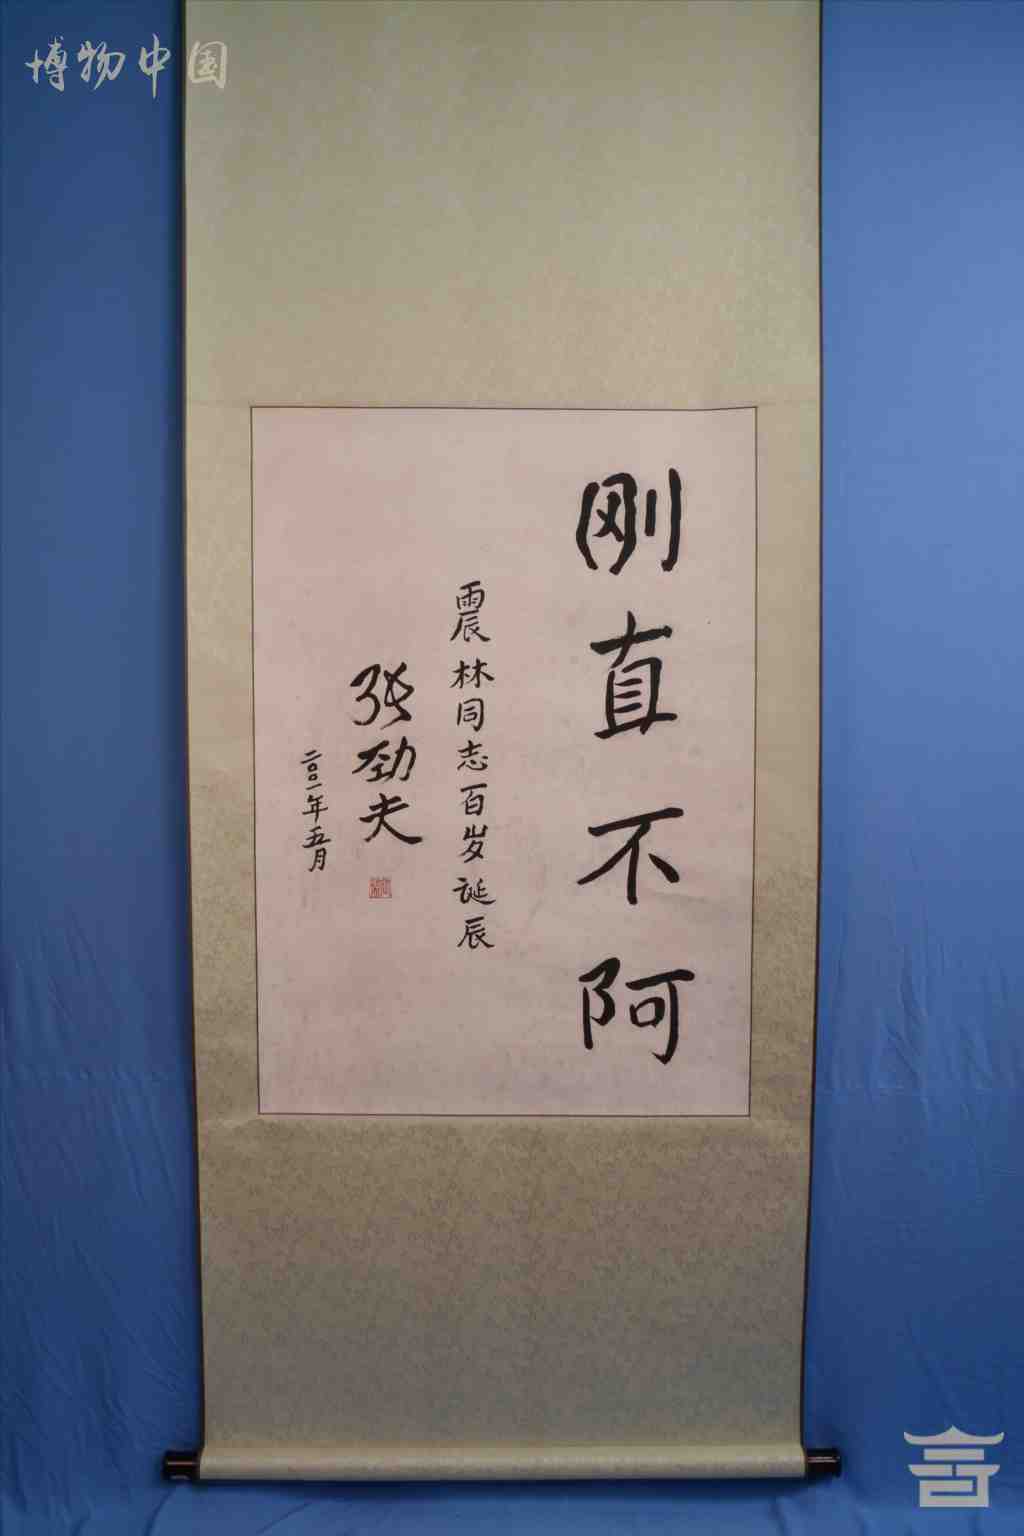 博物中国
刚直不阿
震林同志百岁诞辰
张劲夫
二〇〇一年五月